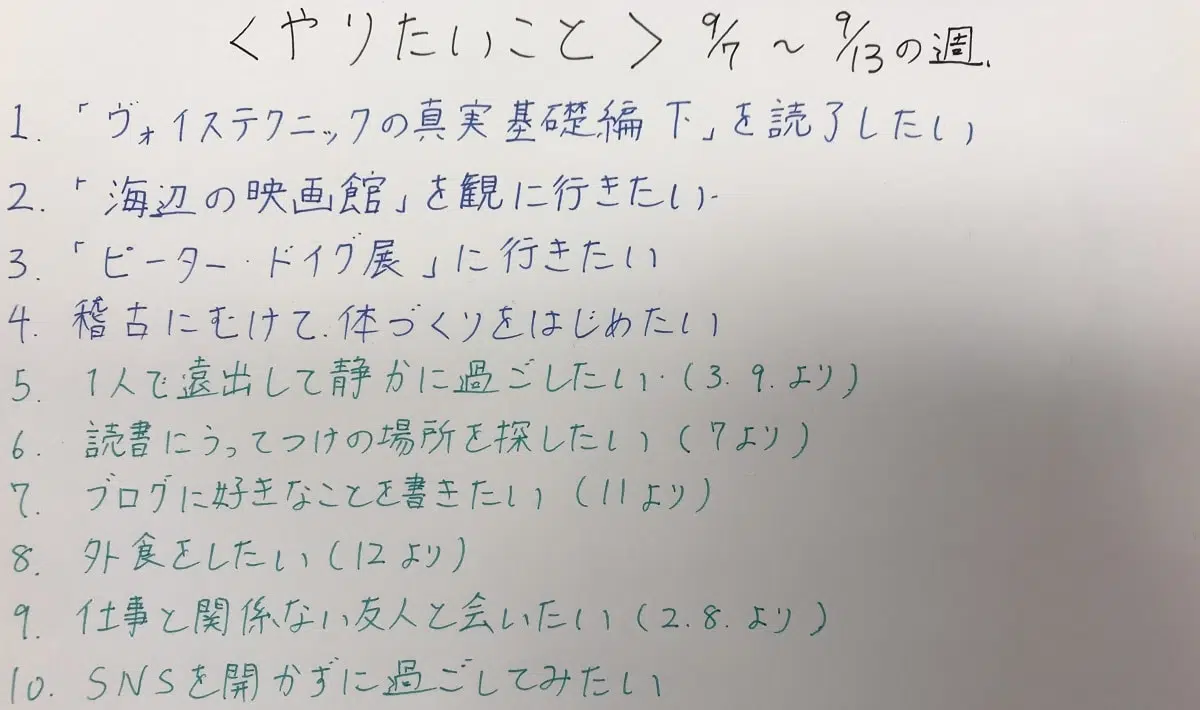 ＜やりたいこと＞ 9/7 ～ 9/13の週.
1. 「ヴォイステクニックの真実 基礎編 下」を読了したい
2. 「海辺の映画館」を観に行きたい.
3. 「ピーター・ドイグ展」に行きたい
4. 稽古にむけて.体づくりをはじめたい
5. 1人で遠出して静かに過ごしたい.(3. 9.より)
6. 読書にうってつけの場所を探したい (7より)
7. ブログに好きなことを書きたい (11より)
8. 外食をしたい(12より)
9. 仕事と関係ない友人と会いたい(2.8.より)
10. SNSを開かずに過ごしてみたい